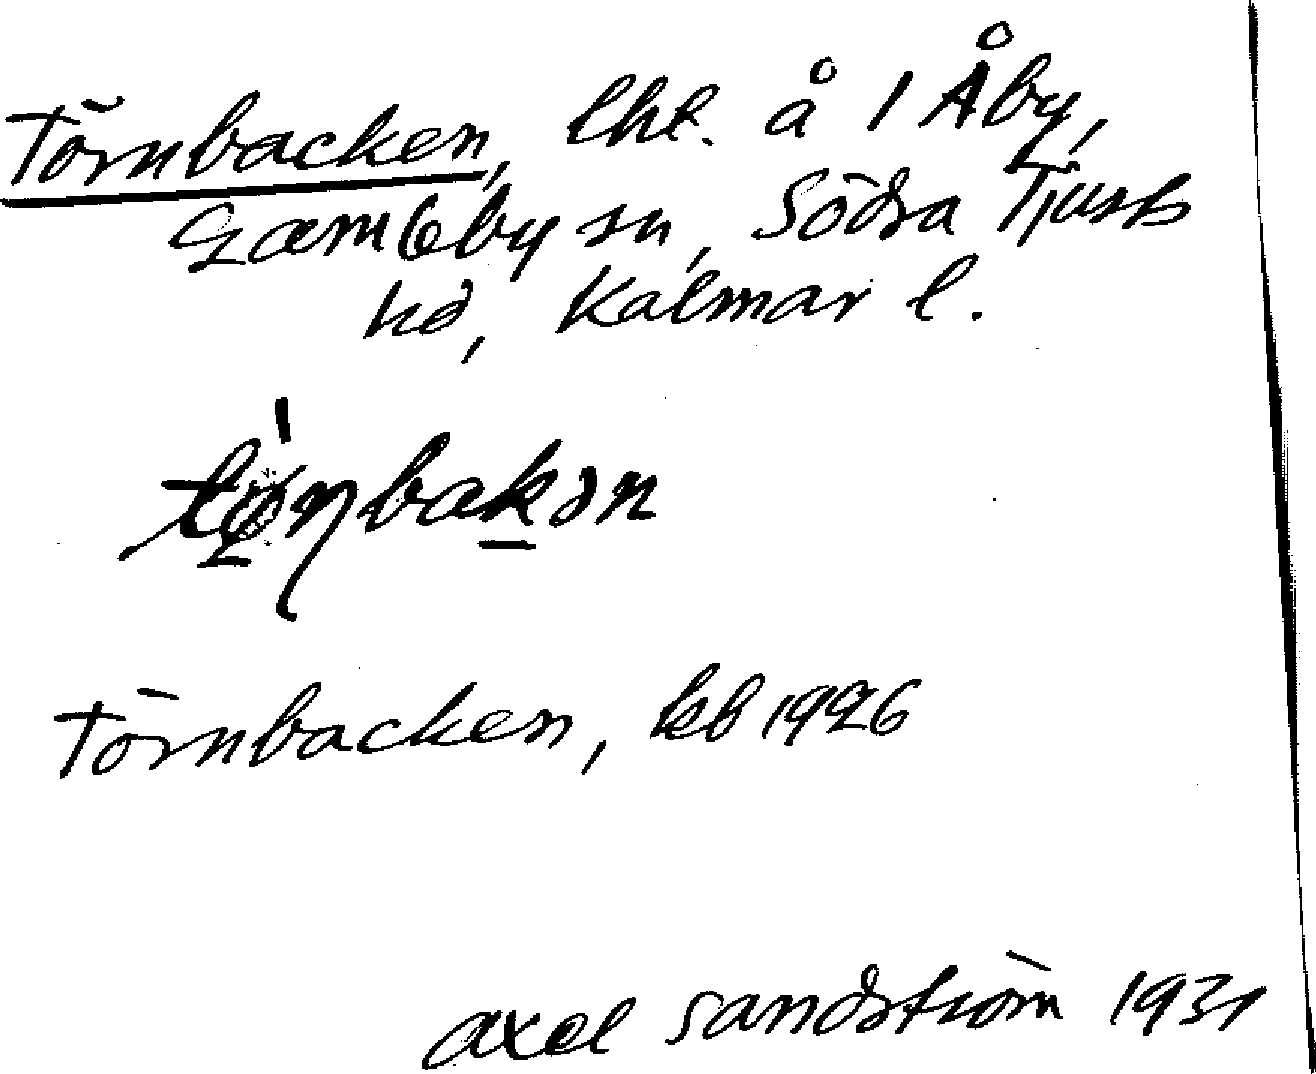 Törnbacken, lht. å 1 Åby,
Gamleby sn, Södra Tjusts
hd, Kalmar l.
Törnbacken, kb 1926
Axel Sandström 1931